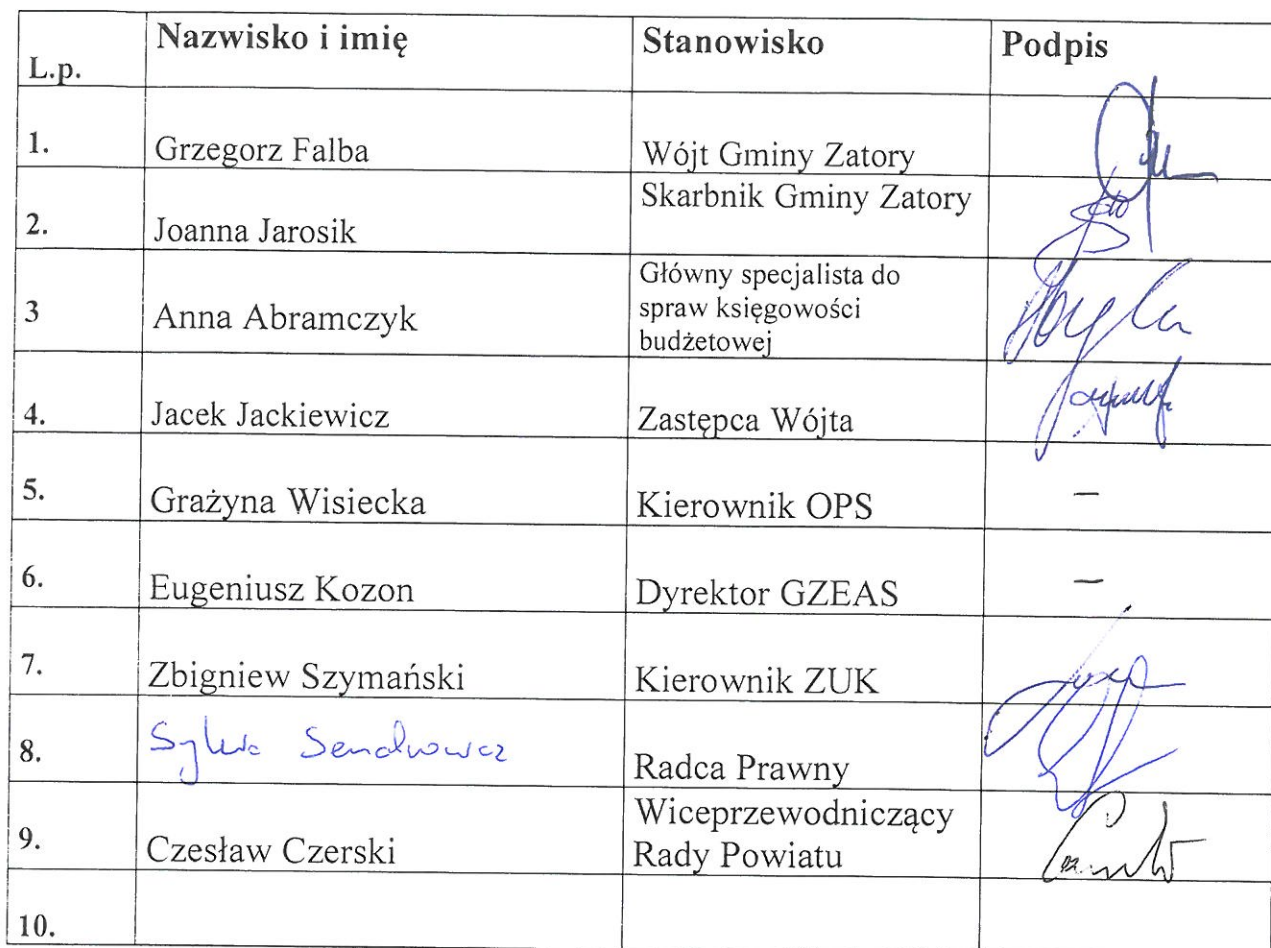 L.p. Nazwisko i imię Stanowisko Podpis
1. Grzegorz Falba Wójt Gminy Zatory
2. Joanna Jarosik Skarbnik Gminy Zatory
3 Anna Abramczyk Główny specjalista do
spraw księgowości
budżetowej
4. Jacek Jackiewicz Zastępca Wójta
5. Grażyna Wisiecka Kierownik OPS –
6. Eugeniusz Kozon Dyrektor GZEAS –
7. Zbigniew Szymański Kierownik ZUK
8. Sylwia Radca Prawny
9. Czesław Czerski Wiceprzewodniczący
Rady Powiatu
10.